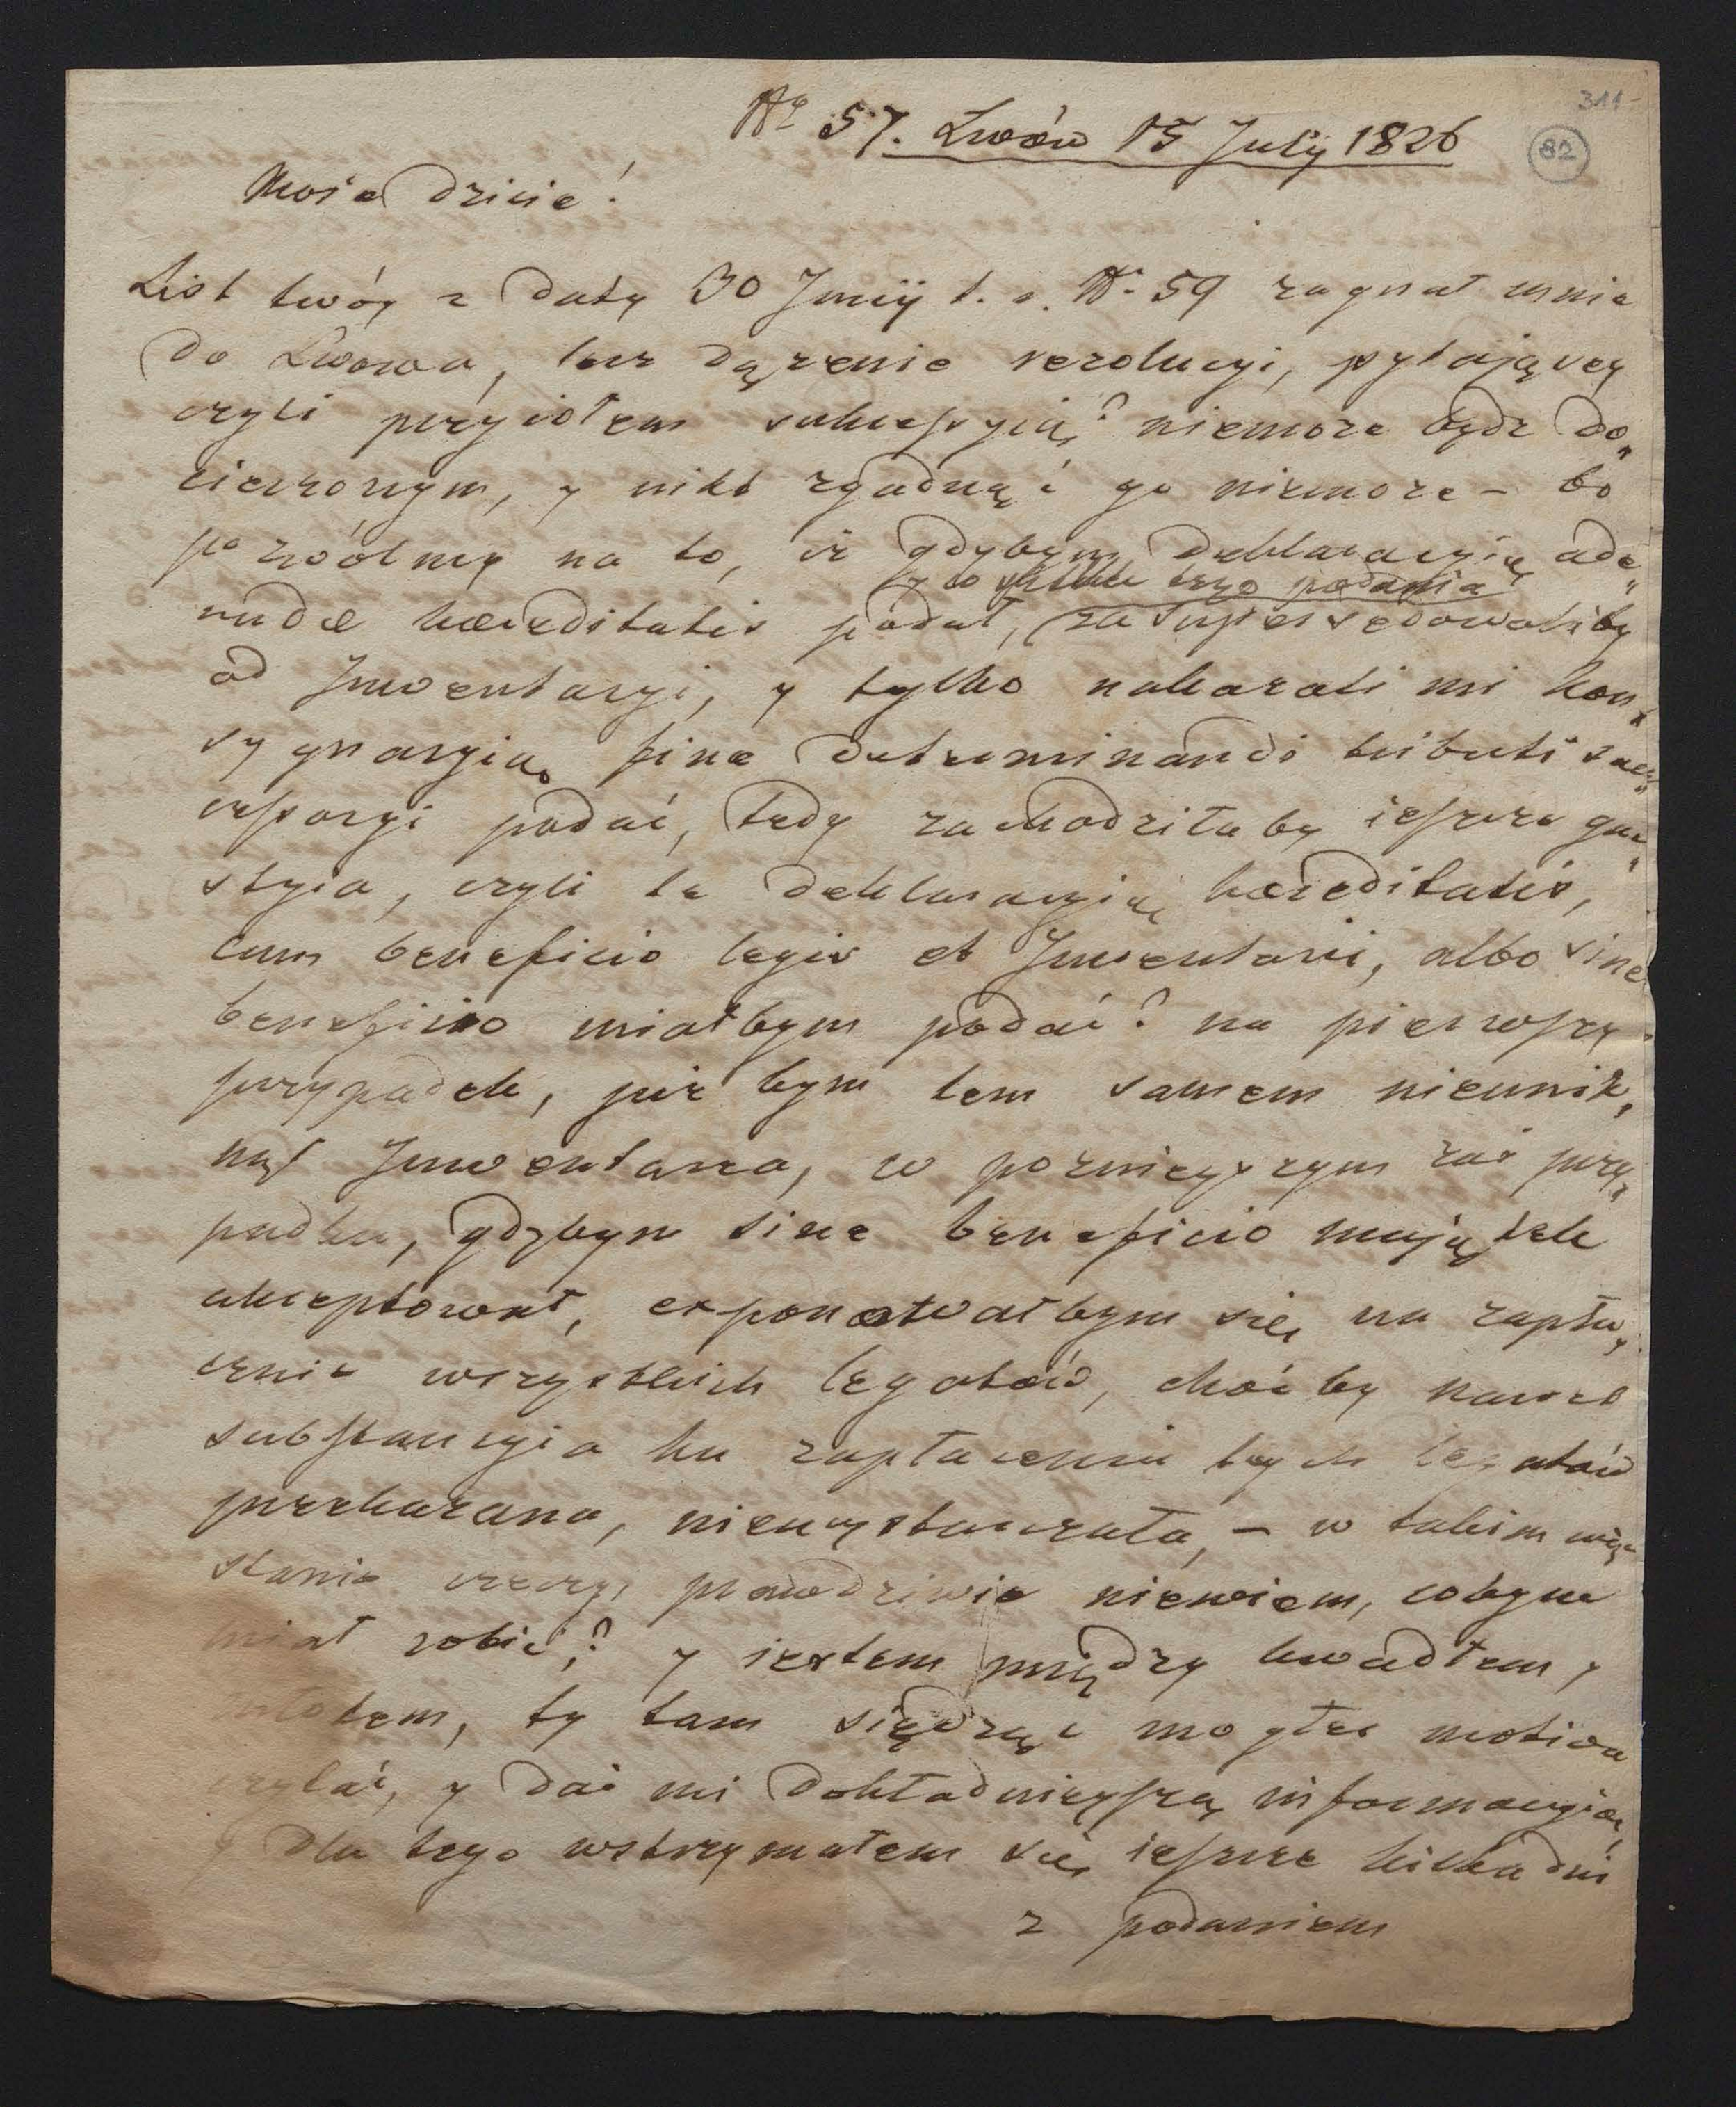 311
82
No 57. Lwów 15 July 1826
Mosie dzicie!
List twóy z daty 30 Junij t. r. No 59 zagnał mnie
do Lwowa, lecz dążenie rezolucyi, pytającey
czyli przyiołem sukcessyią? niemoże bydz do„
cieczonym, y nikt zgadnąć go niemoże – bo
pozwólmy na to, iż gdybym deklaracyią ade„
y w skutku tego podania
undæ hæreditatis podał, zasupersedowaliby
od Inwentaryi, y tylko nakazali mi kon„
sygnacyią fine determinandi tributi suc„
cessoryi podać, tedy zachodziłaby ieszcze que„
stya, czyli tę deklaracyią hæreditatis,
cum beneficio legis et Inventarii, albo sine
beneficio miałbym podać? na pierwszy
przypadek, już bym tem samem nieunik„
nął Inwentarza, w poznieyszym zaś przy„
padku, gdybym sine beneficio majątek
akceptował, exponowałbym się na zapła„
cenie wszystkich legatów, choćby nawet
substancyia ku zapłaceniu tych legatów
przekazana, niewystarczała, – w takim więc
stanie rzeczy, prawdziwie niewiem, cobym
miał robić? y iestem między kowadłem y
młotem, ty tam siędząc mogłeś motiva
czytać, y dać mi dokładnieyszą informacyią,
y dla tego wstrzymałem się ieszcze kilka dni
z podaniem